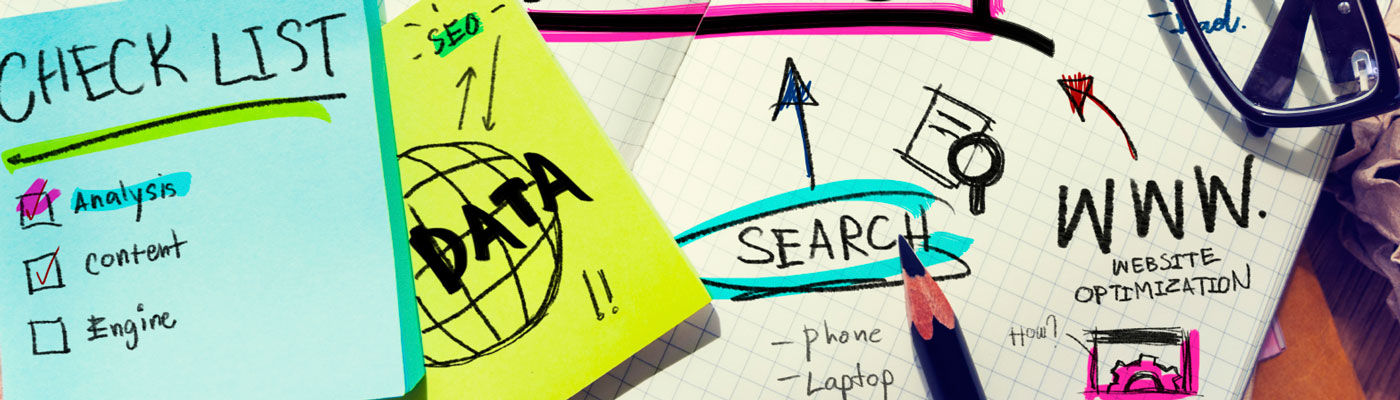 CHECK LIST
Analysis
Content
Engine
SEO
DATA
!!
SEARCH
- phone
- Laptop
WWW.
WEBSITE
OPTIMIZATION
How?